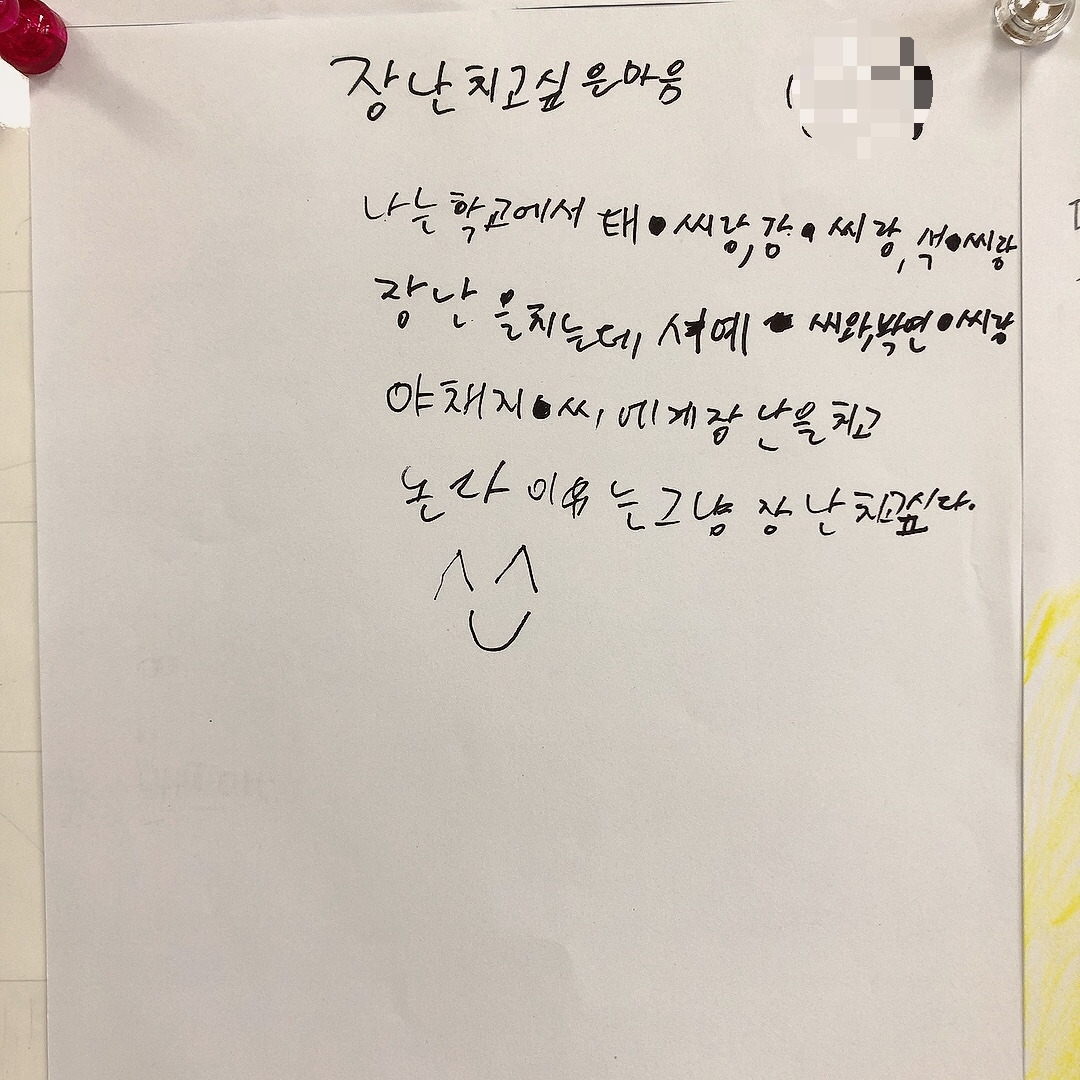 장난치고싶은마음
나는학교에서 태●씨랑,강●씨랑,석●씨랑
장난을치는데, 서예● 씨와,박연●씨랑
야채지●씨,에게장난을치고
논다 이유는그냥 장난치고싶다.